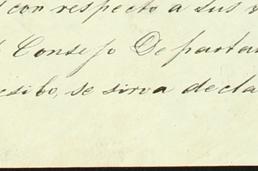 con respecto a sus
Consejo Departa
esibo, se sirva decla